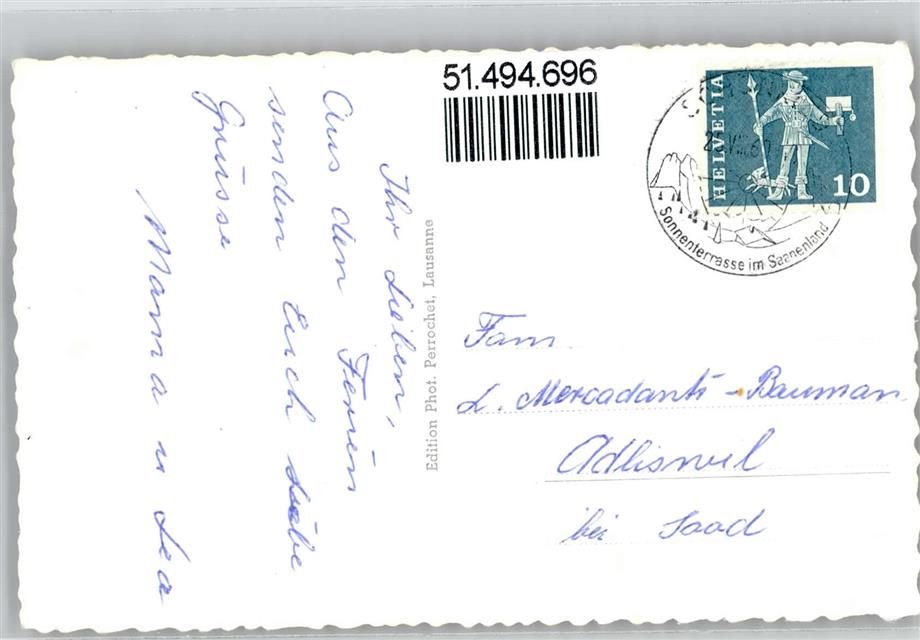 51.494.696
HELVETIA
10
Sonnenterrasse im Saanenland
Ihr Lieben,
Aus den Ferien
senden Euch liebe
Grüsse
Mama u Lea
Edition Phot. Perrochet, Lausanne
Fam.
L. Mercadanti - Bauman
Adliswil
bei Sood